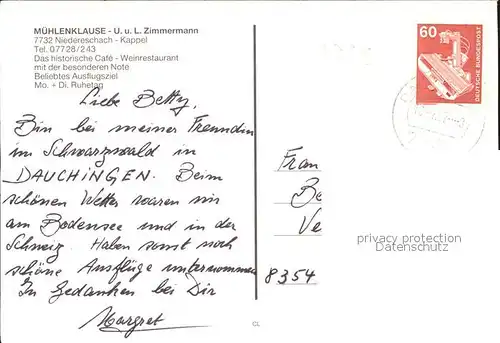 MÜHLENKLAUSE - U. u. L. Zimmermann
7732 Niedereschach - Kappel
Tel. 07728/243
Das historische Café - Weinrestaurant
mit der besonderen Note
Beliebtes Ausflugsziel
Mo. + Di. Ruhetag
60
DEUTSCHE BUNDESPOST
Liebe Betty,
Bin bei meiner Freundin
im Schwarzwald in
DAUCHINGEN. Beim
schönen Wetter waren wir
am Bodensee und in der
Schweiz. Haben sonst noch
schöne Ausflüge unternommen
In Gedanken bei Dir
Margret
Frau
Be
Ve
8354
privacy protection
Datenschutz
CL